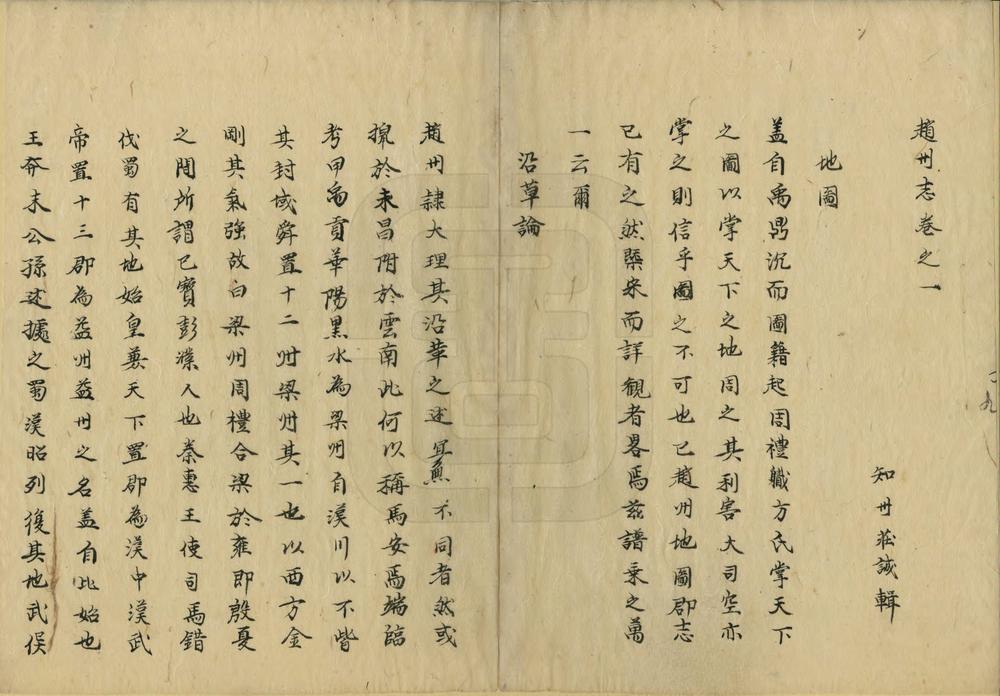 趙州志卷之一
知州莊誠輯
地圖
盖自禹鼎沉而圖籍起周禮職方氏掌天下
之圖以掌天下之地周之其利害大司空亦
掌之則信乎圖之不可也已趙州地圖郡志
已有之然槩宋而詳観者畧焉兹譜乗之萬
一云爾
沿草論
趙州隷大理其沿革之述宜無不同者然或
揔於永昌附於雲南此何以稱焉安焉端臨
考甲禹貢華陽黒水為梁州自漢川以不皆
其封域舜置十二州梁州其一也以西方金
剛其氣強故曰梁州周禮合梁於雍即殷夏
之間所謂巴賓彭濮人也秦惠王使司馬錯
伐蜀有其地始皇兼天下置郡為漢中漢武
帝置十三郡為益州益州之名盖自此始也
王莽末公孫述據之蜀漢昭列復其地武侯